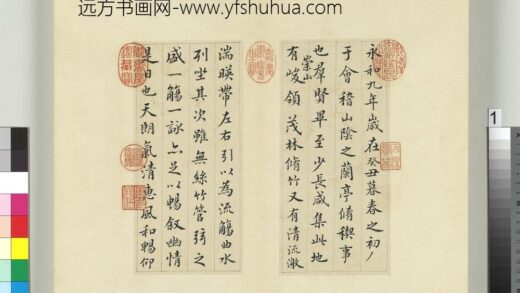 远方书画网-www.yfshuhua.com
永和九年歲在癸丑暮春之初
于會稽山陰之蘭亭脩稧事
也羣賢畢至少長咸集此地
有崇山峻領茂林脩竹又有清流激
湍暎帶左右引以為流觴曲水
列坐其次雖無絲竹管弦之
盛一觴一詠亦足以暢叙幽情
是日也天朗氣清惠風和暢仰
1